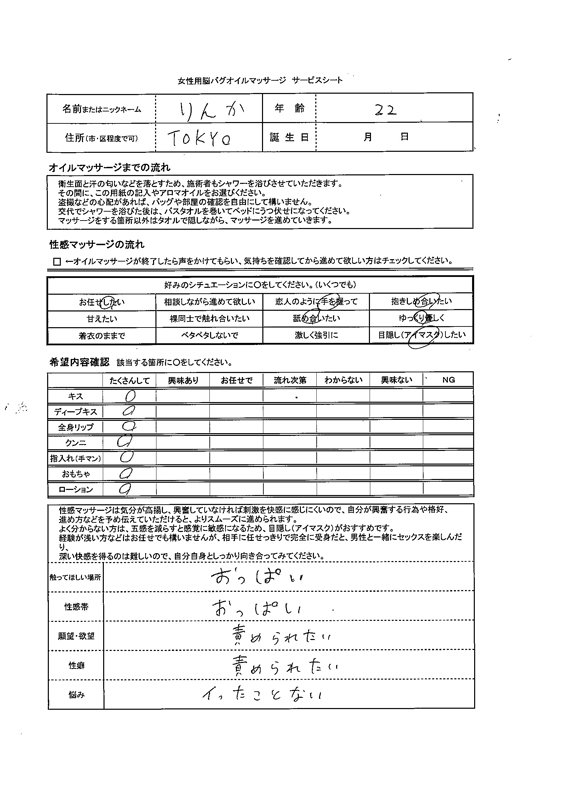 女性用脳バグオイルマッサージ サービスシート
名前またはニックネーム りんか 年齢 22
住所(市・区程度で可) TOKYO 誕生日 月 日
オイルマッサージまでの流れ
衛生面と汗の匂いなどを落とすため、施術者もシャワーを浴びさせていただきます。
その間に、この用紙の記入やアロマオイルをお選びください。
盗撮などの心配があれば、バッグや部屋の確認を自由にして構いません。
交代でシャワーを浴びた後は、バスタオルを巻いてベッドにうつ伏せになってください。
マッサージをする箇所以外はタオルで隠しながら、マッサージを進めていきます。
性感マッサージの流れ
□ ←オイルマッサージが終了したら声をかけてもらい、気持ちを確認してから進めて欲しい方はチェックしてください。
好みのシチュエーションに○をしてください。(いくつでも)
お任せしたい 相談しながら進めて欲しい 恋人のように手を握って 抱きしめ合いたい
甘えたい 裸同士で触れ合いたい 舐め合いたい ゆっくり優しく
着衣のままで ベタベタしないで 激しく強引に 目隠し(アイマスク)したい
希望内容確認 該当する箇所に○をしてください。
たくさんして 興味あり お任せで 流れ次第 わからない 興味ない NG
キス ○
ディープキス ○
全身リップ ○
クンニ ○
指入れ(手マン) ○
おもちゃ ○
ローション ○
性感マッサージは気分が高揚し、興奮していなければ刺激を快感に感じにくいので、自分が興奮する行為や格好、
進め方などを予め伝えていただけると、よりスムーズに進められます。
よく分からない方は、五感を減らすと感覚に敏感になるため、目隠し(アイマスク)がおすすめです。
経験が浅い方などはお任せでも構いませんが、相手に任せっきりで完全に受身だと、男性と一緒にセックスを楽しんだ
り、
深い快感を得るのは難しいので、自分自身としっかり向き合ってみてください。
触ってほしい場所 おっぱい
性感帯 おっぱい
願望・欲望 責められたい
性癖 責められたい
悩み イったことない